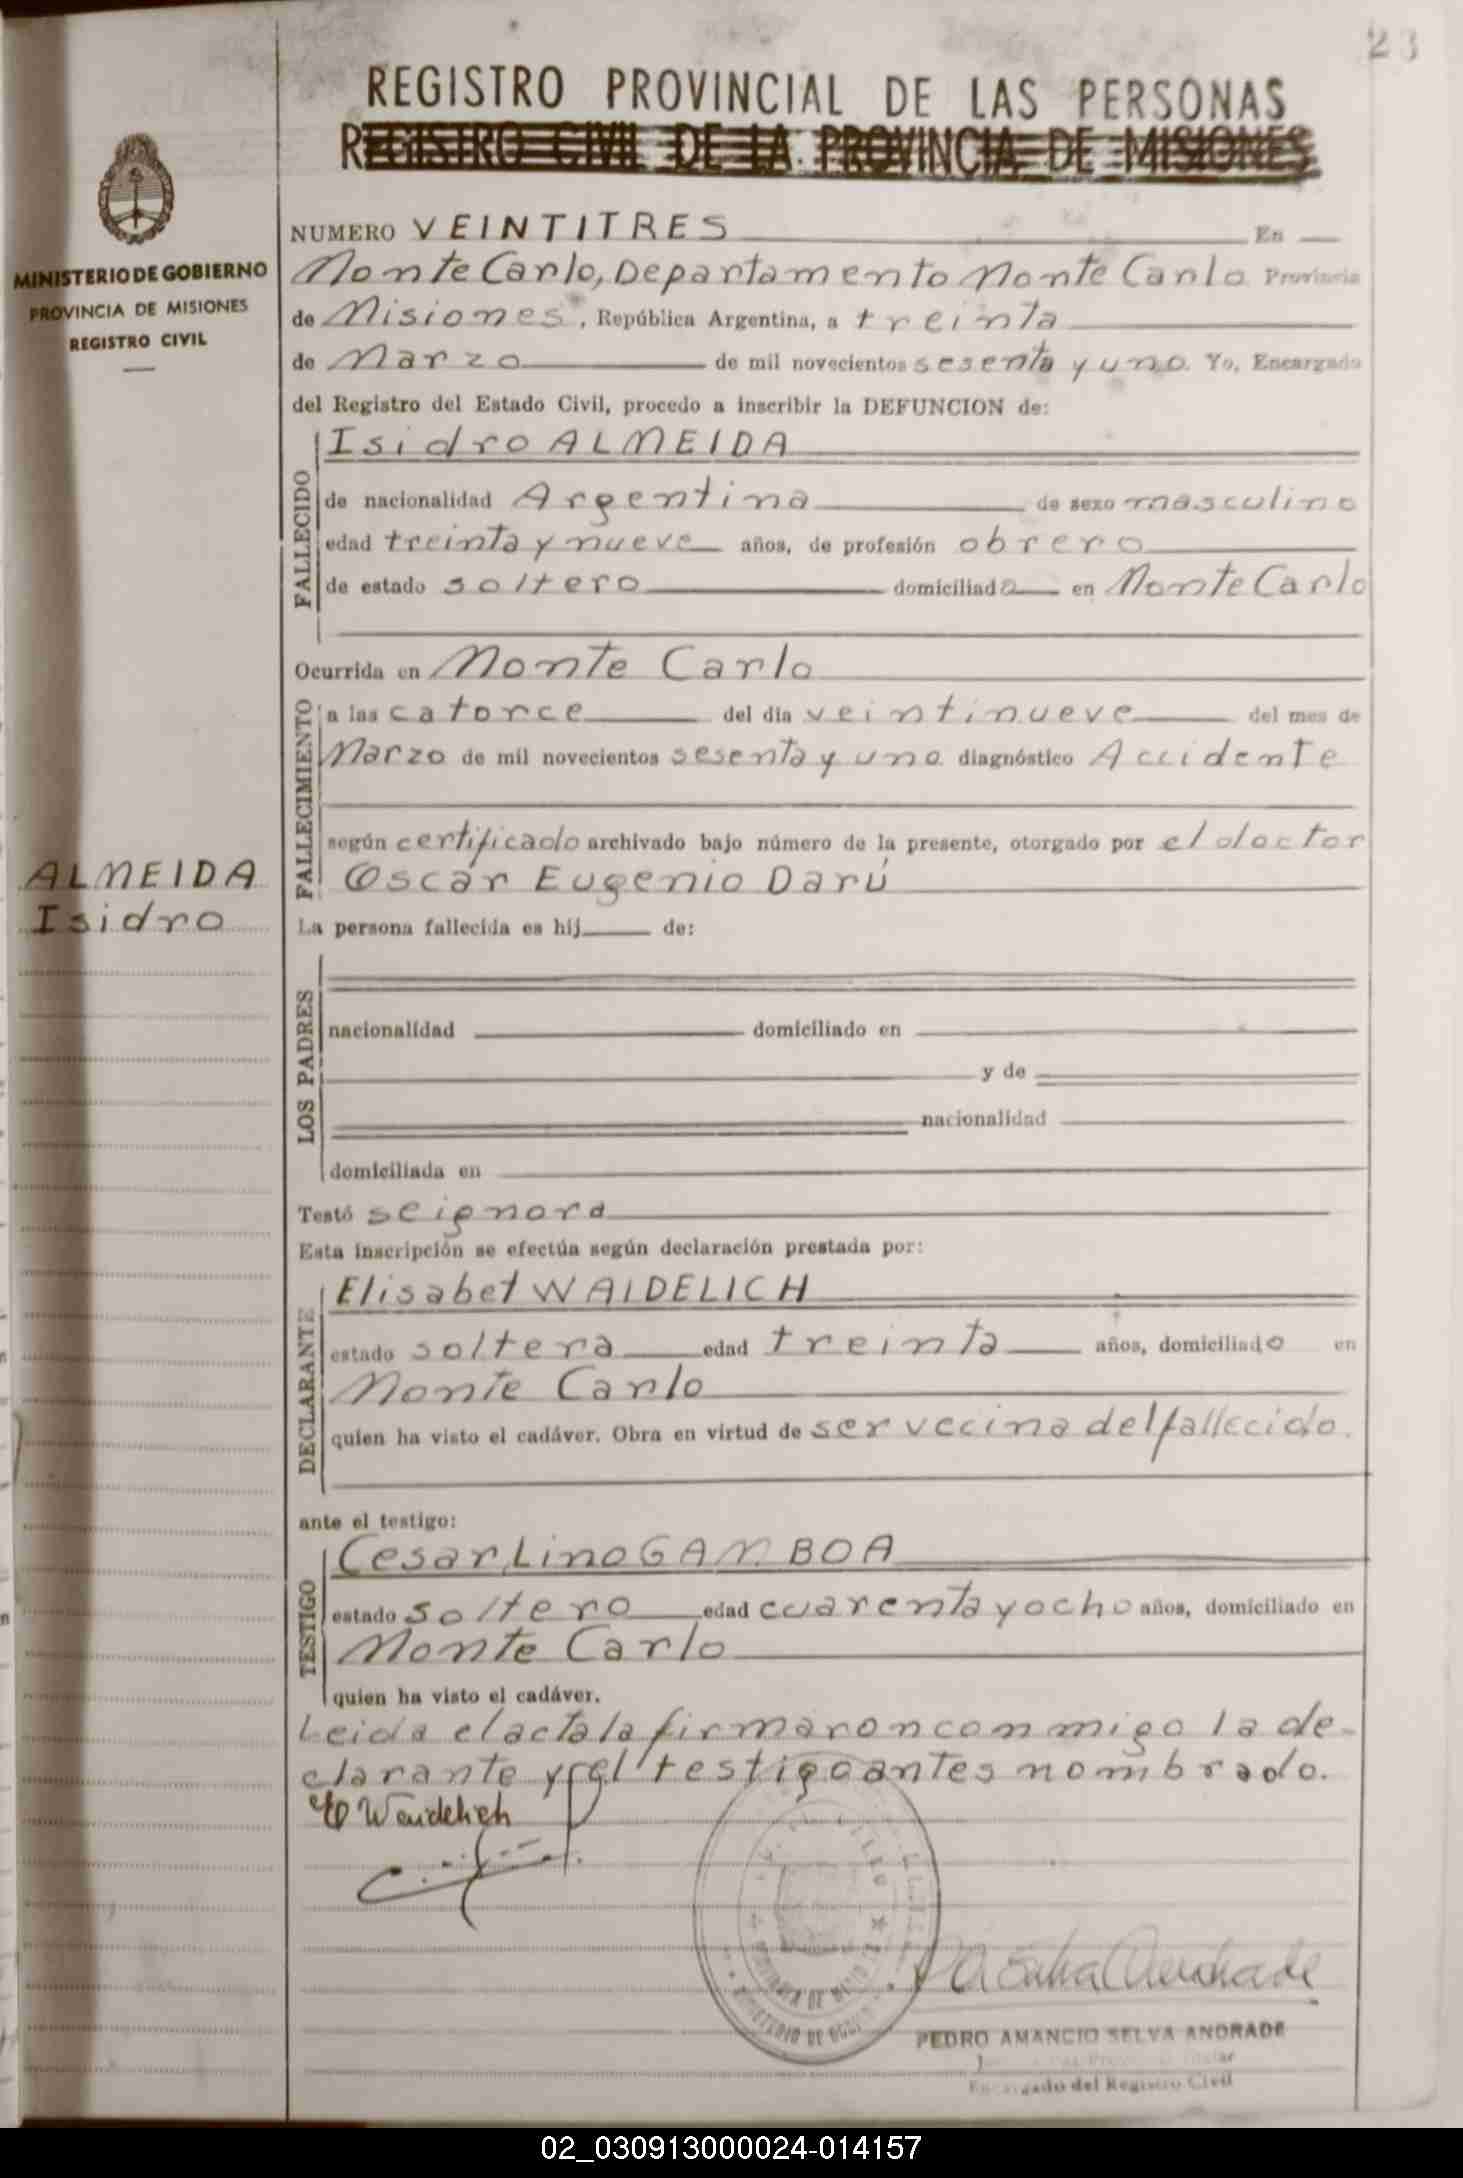 23
REGISTRO PROVINCIAL DE LAS PERSONAS
REGISTRO CIVIL DE LA PROVINCIA DE MISIONES
MINISTERIO DE GOBIERNO
PROVINCIA DE MISIONES
REGISTRO CIVIL
NUMERO VEINTITRES En
Monte Carlo, Departamento Monte Carlo Provincia
de Misiones, República Argentina, a treinta
de Marzo de mil novecientos sesenta y uno. Yo, Encargado
del Registro del Estado Civil, procedo a inscribir la DEFUNCION de:
FALLECIDO
Isidro ALMEIDA
de nacionalidad Argentina de sexo masculino
edad treinta y nueve años, de profesión obrero
de estado soltero domiciliado en Monte Carlo
Ocurrida en Monte Carlo
FALLECIMIENTO
a las catorce del día veintinueve del mes de
Marzo de mil novecientos sesenta y uno diagnóstico Accidente
según certificado archivado bajo número de la presente, otorgado por el doctor
Oscar Eugenio Darú
ALMEIDA
Isidro
La persona fallecida es hij de:
LOS PADRES
nacionalidad domiciliado en
y de
nacionalidad
domiciliada en
Testó se ignora
Esta inscripción se efectúa según declaración prestada por:
DECLARANTE
Elisabet WAIDELICH
estado soltera edad treinta años, domiciliado en
Monte Carlo
quien ha visto el cadáver. Obra en virtud de ser vecina del fallecido.
ante el testigo:
TESTIGO
Cesar Lino GAMBOA
estado soltero edad cuarenta y ocho años, domiciliado en
Monte Carlo
quien ha visto el cadáver.
Leida el acta la firmaron conmigo la de-
clarante y el testigo antes nombrado.
E Waidelich
PA Selva Andrade
PEDRO AMANCIO SELVA ANDRADE
Encargado del Registro Civil
02_030913000024-014157